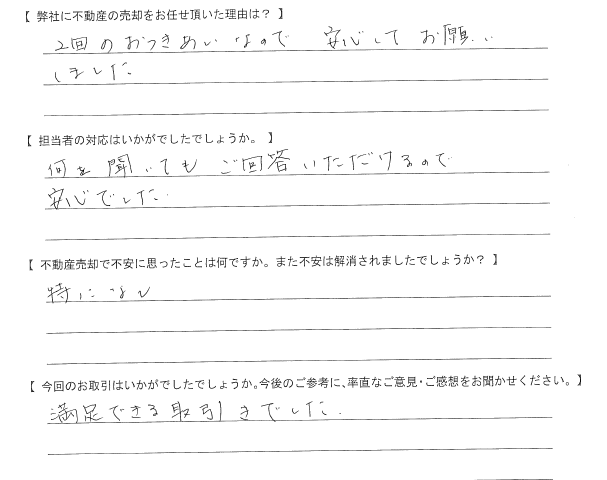 【 弊社に不動産の売却をお任せ頂いた理由は？ 】
2回のおつきあいなので 安心してお願い
しました
【 担当者の対応はいかがでしたでしょうか。 】
何を聞いても ご回答いただけるので
安心でした.
【 不動産売却で不安に思ったことは何ですか。また不安は解消されましたでしょうか？ 】
特になし
【 今回のお取引はいかがでしたでしょうか。今後のご参考に、率直なご意見・ご感想をお聞かせください。】
満足できる取引きでした.